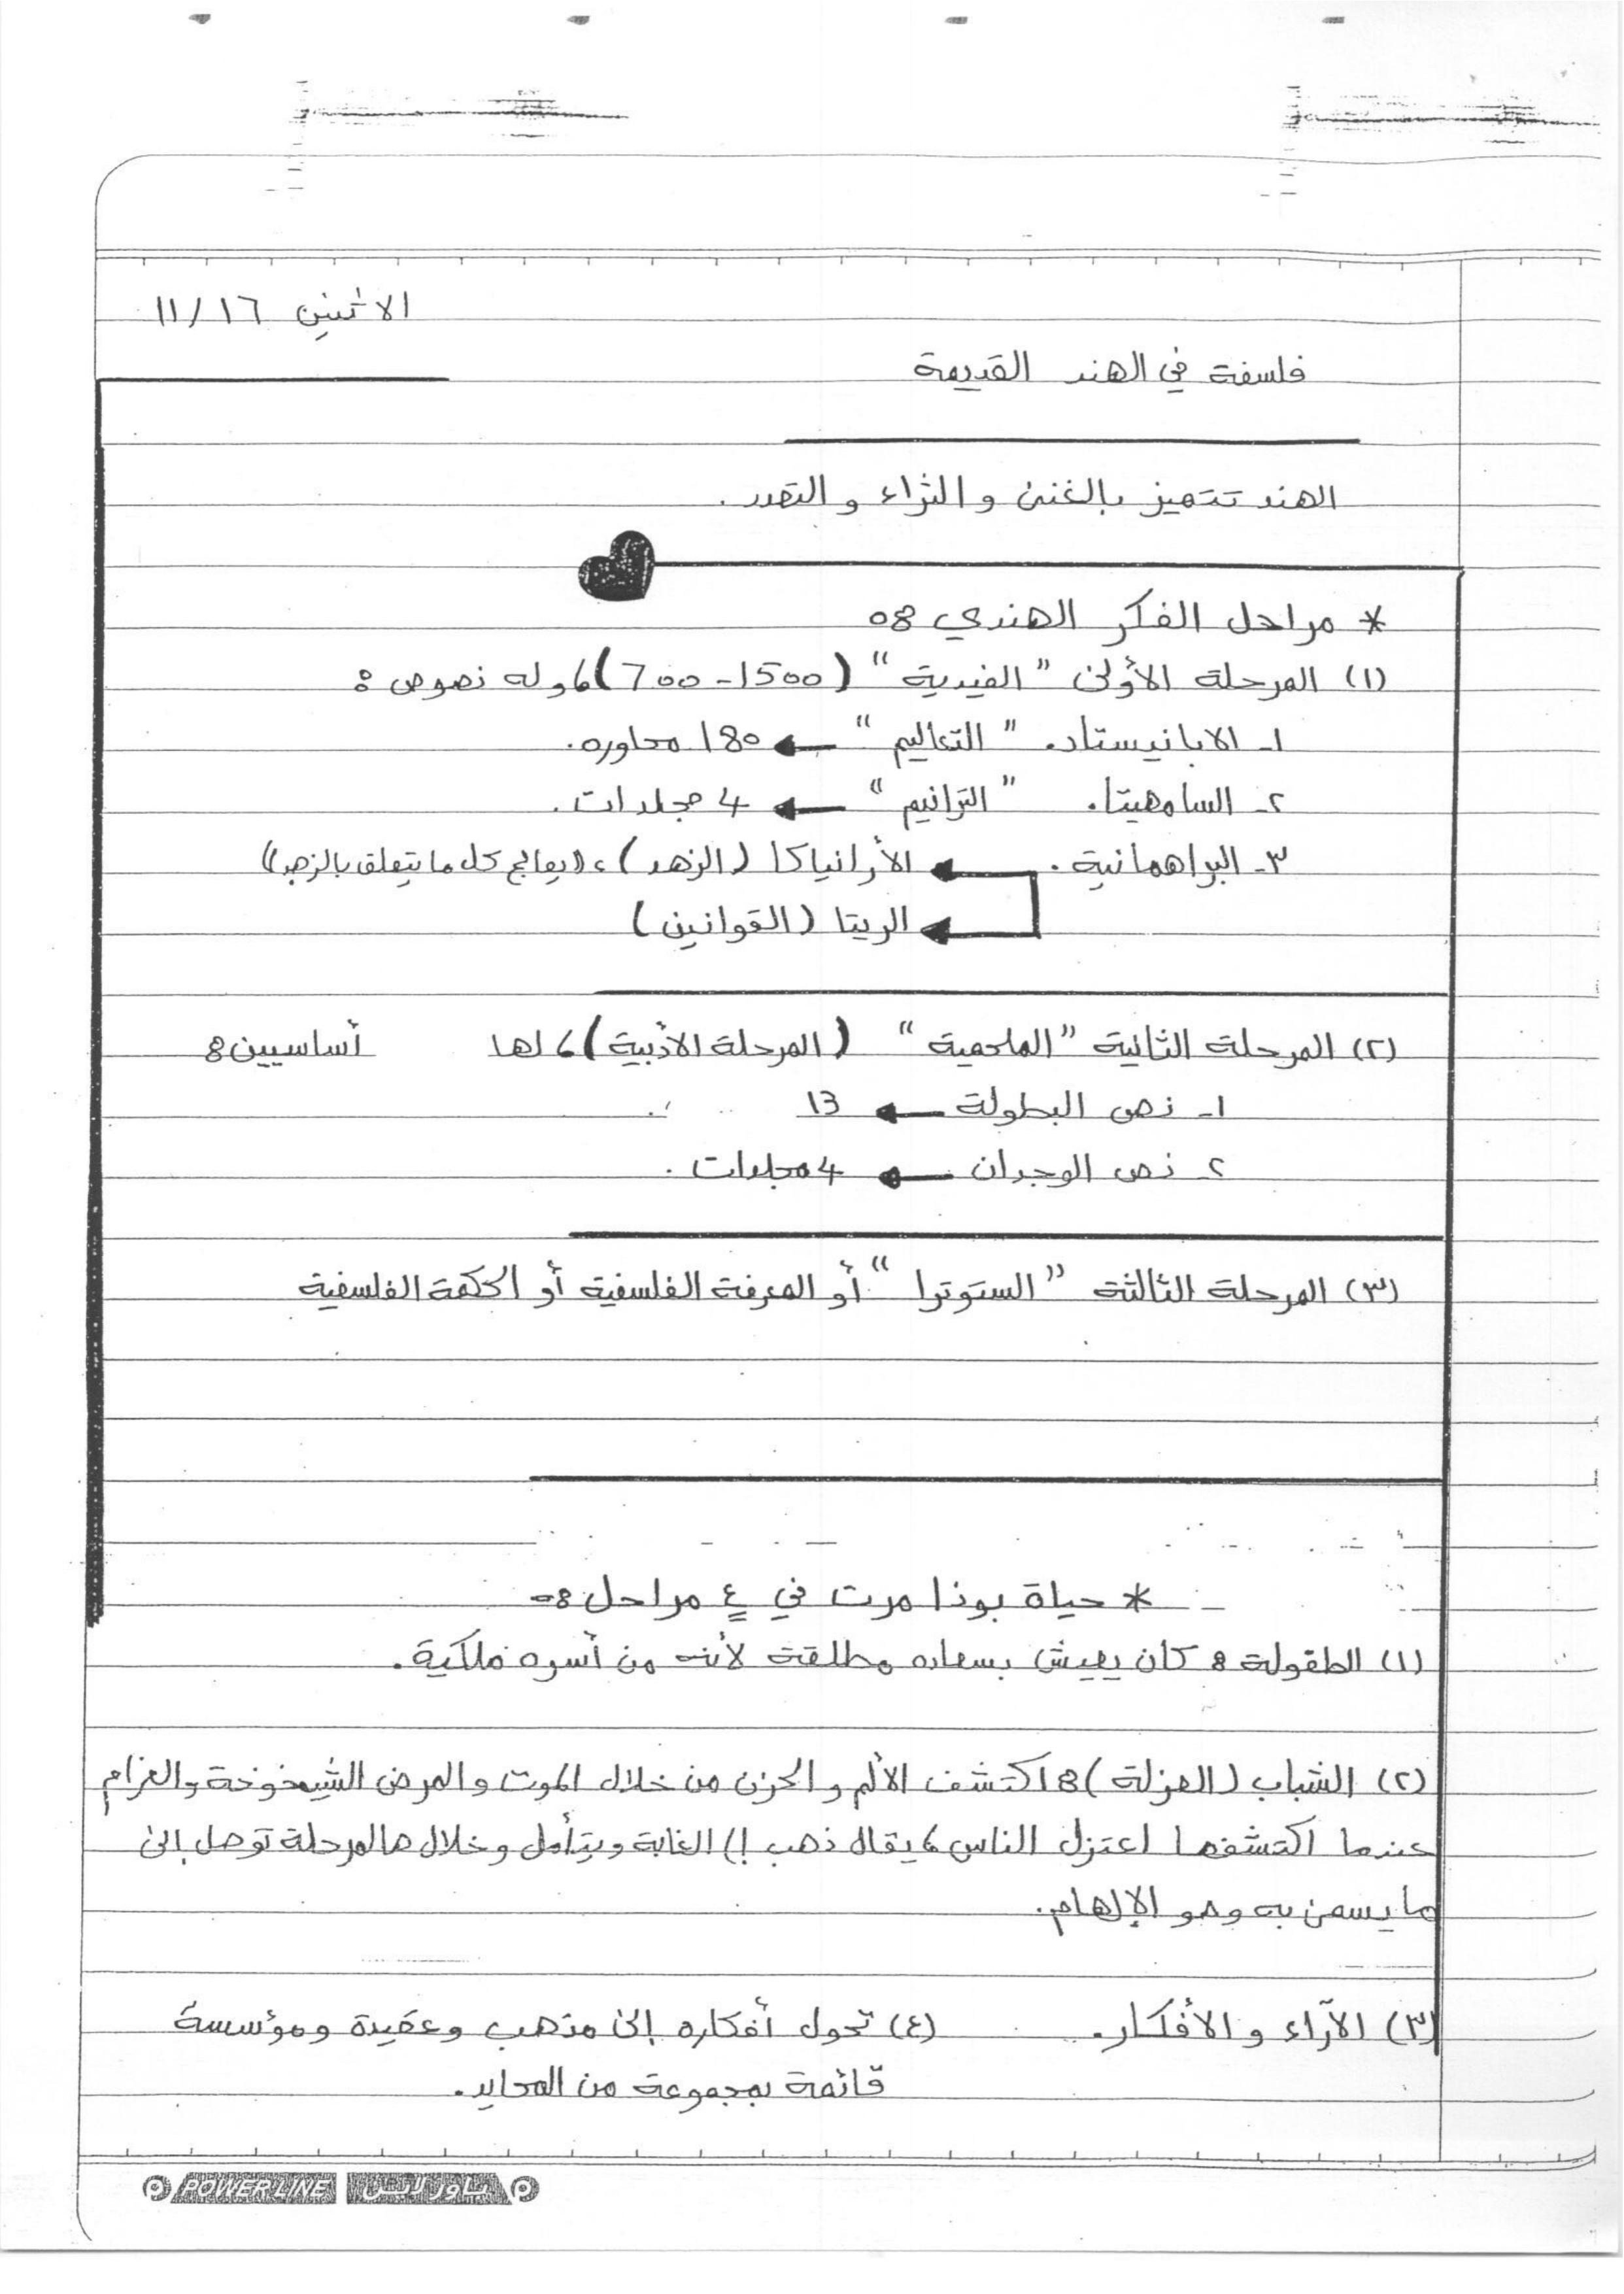 الاثنين ١٦/١١
فلسفة في الهند القديمة
الهند تتميز بالغنى و الثراء و التعدد.
* مراحل الفكر الهندي :-
(١) المرحلة الأولى "الفيدية" (1500-700)، وله نصوص:
١- الابانيستاد. "التعاليم" ← 180 محاوره.
٢- السامهيتا. "الترانيم" ← 4 مجلدات.
٣- البراهمانية. ← الأرانياكا (الزهد)، (يعالج كل ما يتعلق بالزهد)
← الريتا (القوانين)
(٢) المرحلة الثانية "الملحمية" (المرحلة الأدبية)، لها أساسيين:
١- نص البطولة ← 13
٢- نص الوجدان ← 4 مجلدات.
(٣) المرحلة الثالثة "الستوترا" أو المعرفة الفلسفية أو الحكمة الفلسفية
* حياة بوذا مرت في ٤ مراحل :-
(١) الطفولة: كان يعيش بسعاده مطلقة لأنه من أسره ملكية.
(٢) الشباب (العزلة): اكتشف الألم والحزن من خلال الموت والمرض الشيخوخة والغرام
عندما اكتشفها اعتزل الناس، يقال ذهب إلى الغابة ويتأمل وخلال هالمرحلة توصل إلى
ما يسمى به وهو الإلهام.
(٣) الآراء والأفكار. (٤) تحول أفكاره إلى مذهب وعقيدة ومؤسسة
قائمة بمجموعة من المعابد.
POWER LINE باور لاين